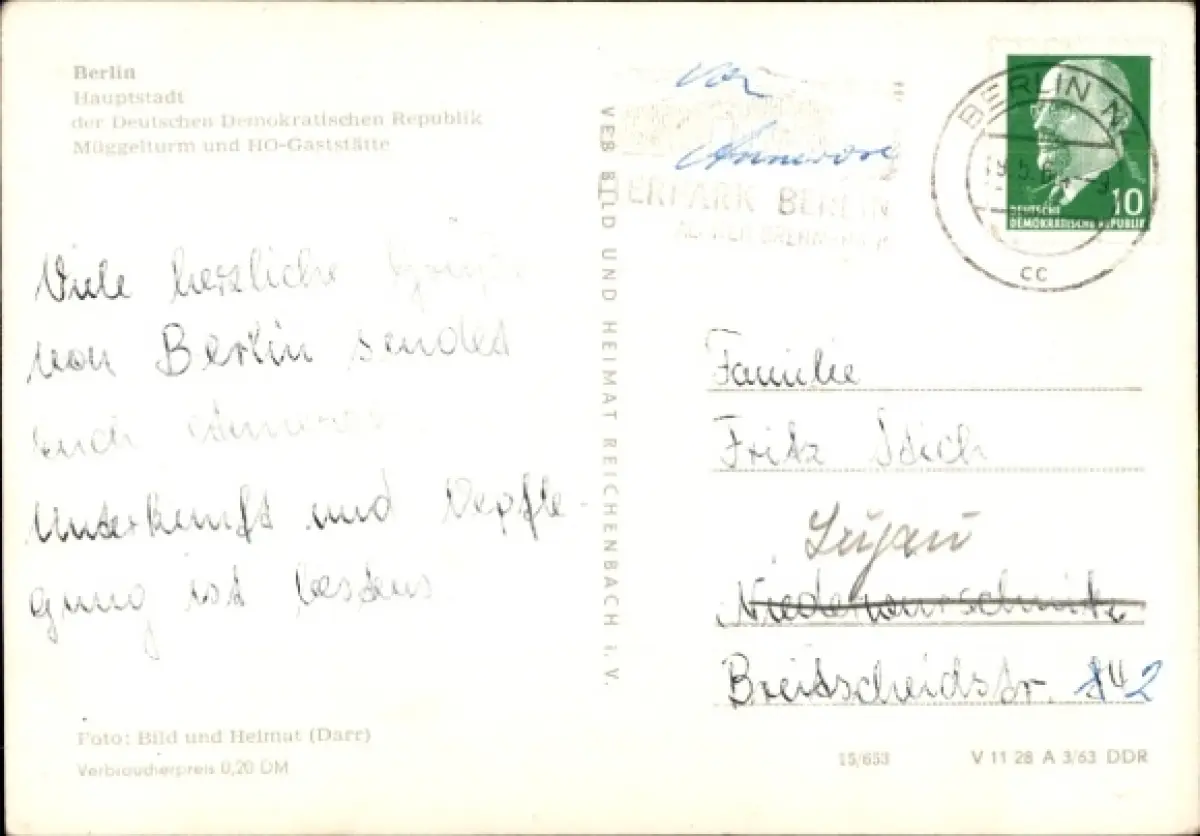 Berlin
Hauptstadt
der Deutschen Demokratischen Republik
Müggelturm und HO-Gaststätte
Viele herzliche Grüße
von Berlin sendet
Euch
Unterkunft und Vepfle-
gung ist bestens
Foto: Bild und Heimat (Darr)
Verbraucherpreis 0,20 DM
VEB BILD UND HEIMAT REICHENBACH i. V.
von
Annerose
ERPARK BERLIN
BERLIN N
CC
10
DEUTSCHE
DEMOKRATISCHE REPUBLIK
Familie
Fritz
Lugau
Niederwürschnitz
Breitscheidstr. 2
15/653
V 11 28 A 3/63 DDR